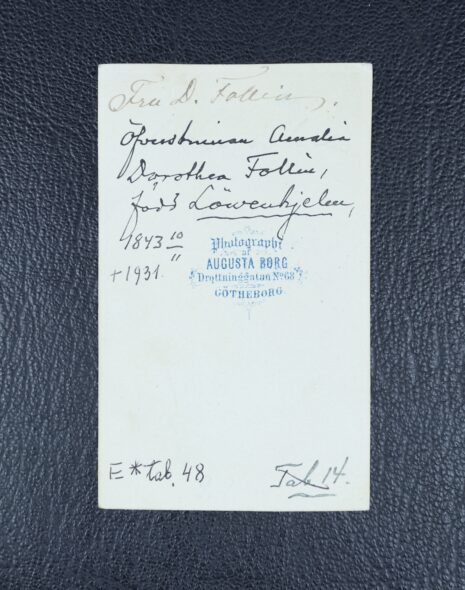 Fru D. Follin.
Öfverstinnan Amalia
Dorothea Follin,
född Löwenhjelm,
1843 10/11
+ 1931.
Photographi
af
AUGUSTA BORG
Drottninggatan No 68
GÖTHEBORG
E * tab. 48
Tab 14.